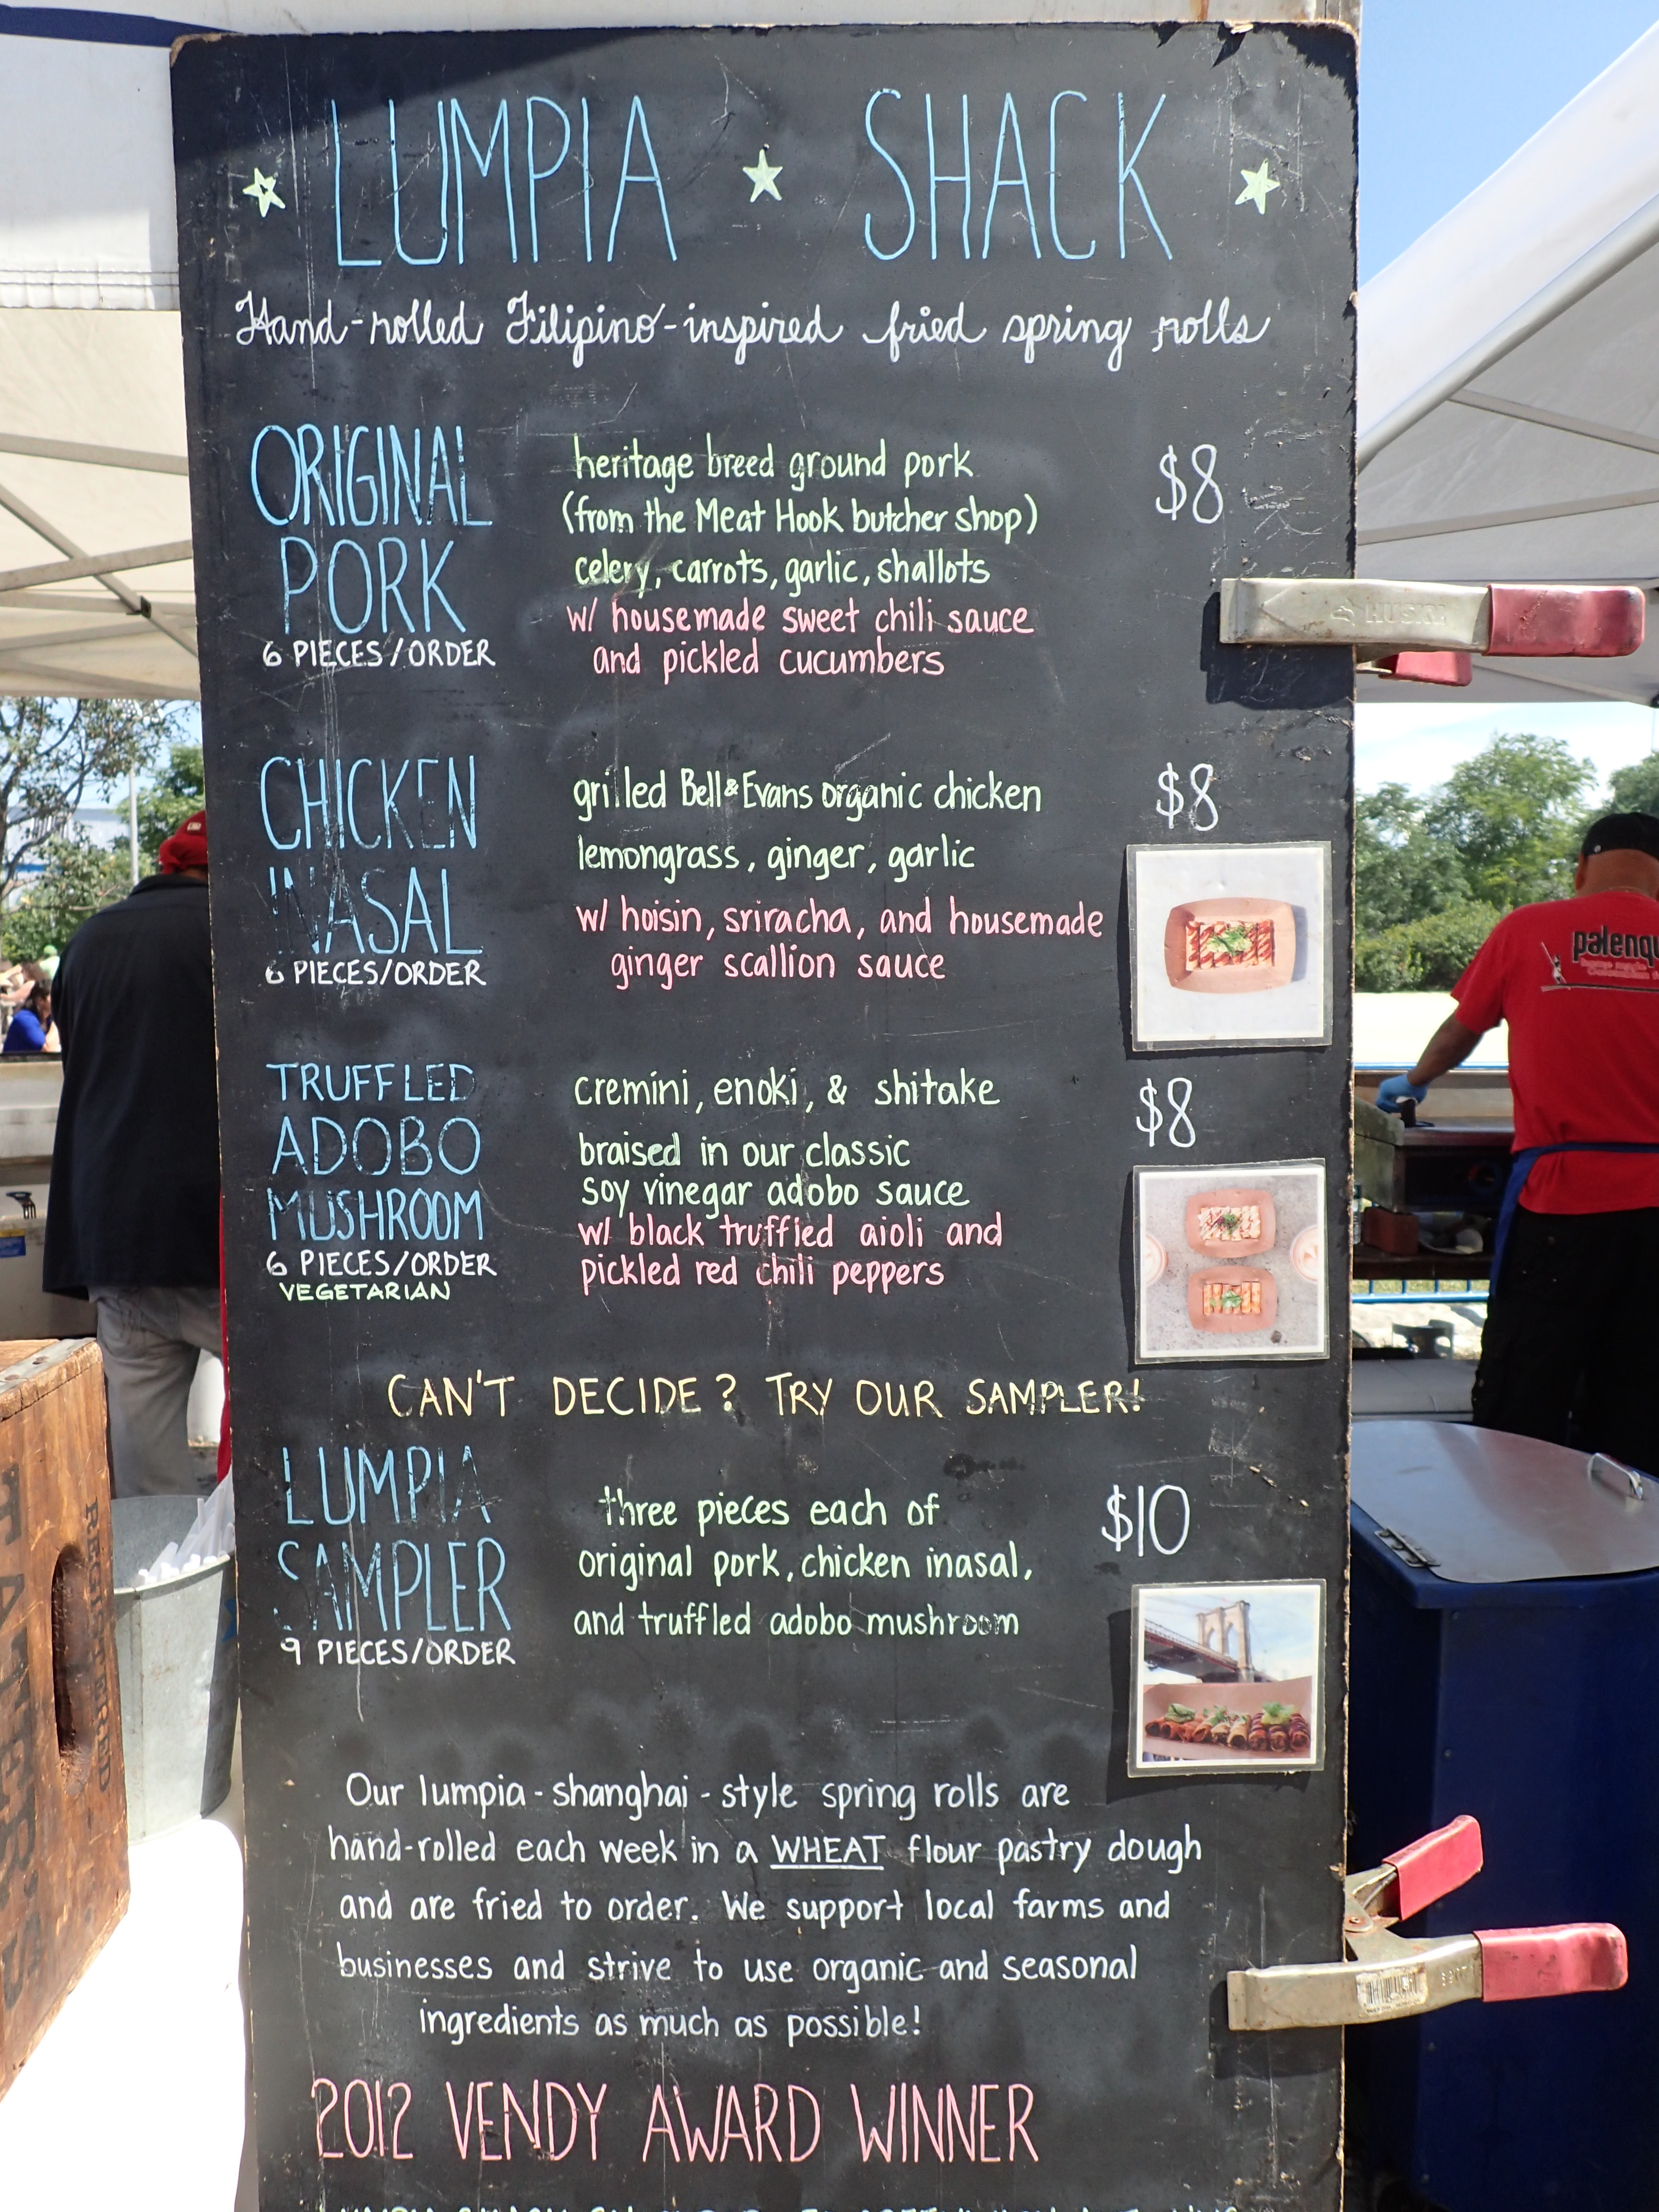 LUMPIA SHACK
Hand-rolled Filipino-inspired fried spring rolls
ORIGINAL
PORK
6 PIECES/ORDER
heritage breed ground pork
(from the Meat Hook butcher shop)
celery, carrots, garlic, shallots
w/ housemade sweet chili sauce
and pickled cucumbers
$8
HUSKY
CHICKEN
INASAL
6 PIECES/ORDER
grilled Bell & Evans organic chicken
lemongrass, ginger, garlic
w/ hoisin, sriracha, and housemade
ginger scallion sauce
$8
TRUFFLED
ADOBO
MUSHROOM
6 PIECES/ORDER
VEGETARIAN
cremini, enoki, & shitake
braised in our classic
soy vinegar adobo sauce
w/ black truffled aioli and
pickled red chili peppers
$8
CAN'T DECIDE? TRY OUR SAMPLER!
LUMPIA
SAMPLER
9 PIECES/ORDER
three pieces each of
original pork, chicken inasal,
and truffled adobo mushroom
$10
Our lumpia-shanghai-style spring rolls are
hand-rolled each week in a WHEAT flour pastry dough
and are fried to order. We support local farms and
businesses and strive to use organic and seasonal
ingredients as much as possible!
2012 VENDY AWARD WINNER
palenqu